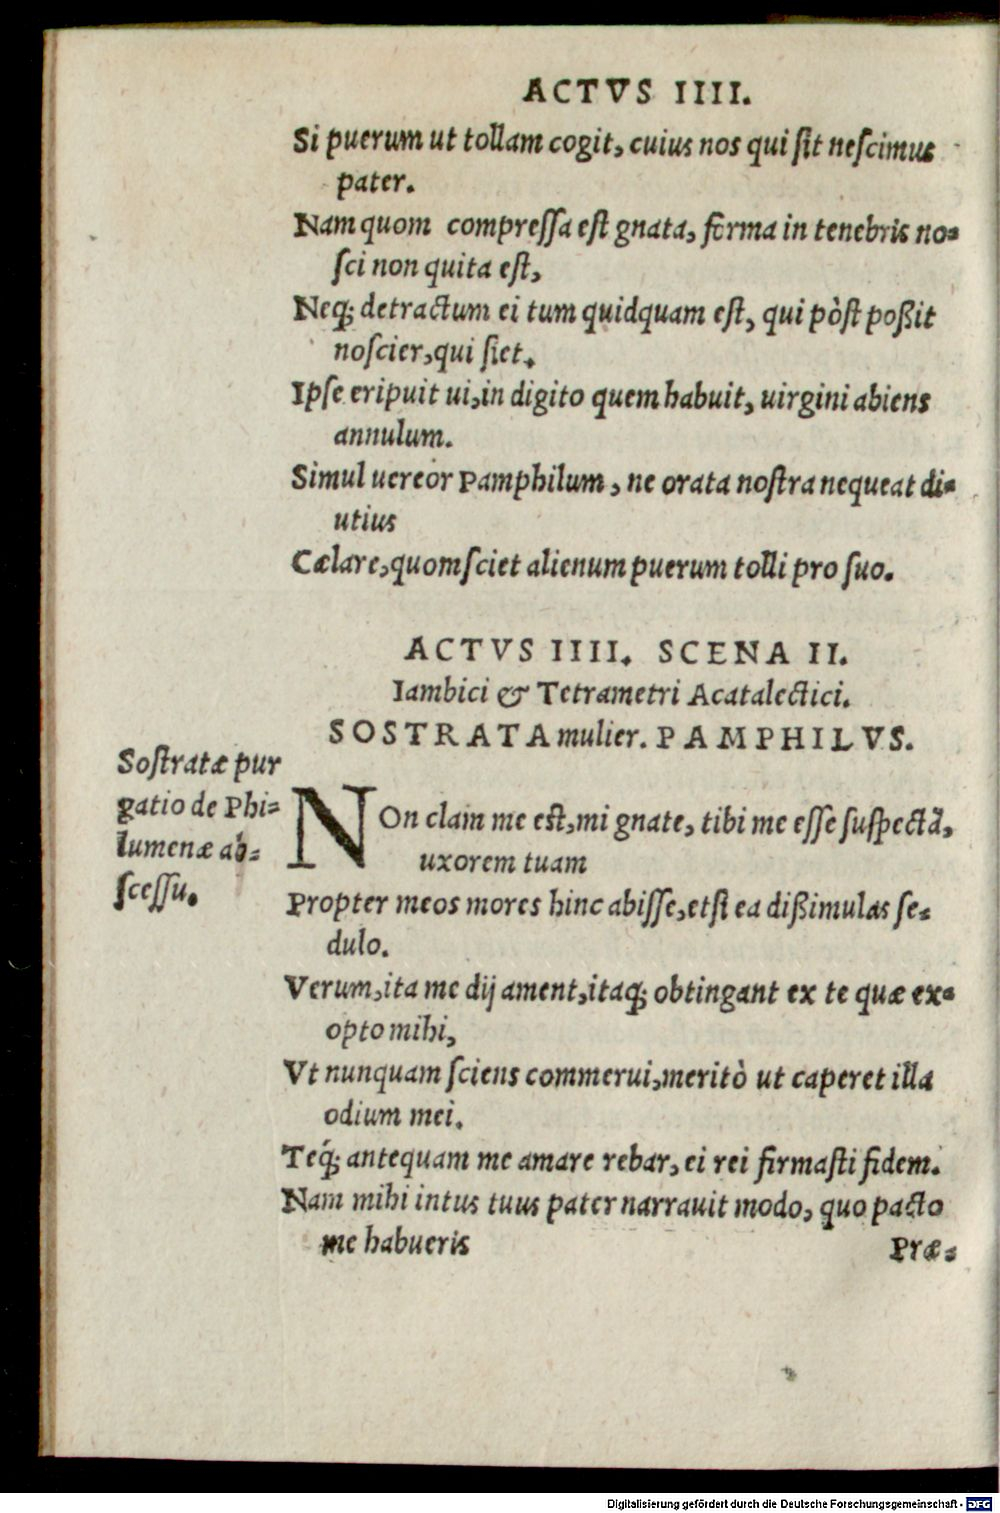 ACTVS IIII.
Si puerum ut tollam cogit, cuius nos qui ſit neſcimus
pater.
Nam quom compreſſa eſt gnata, forma in tenebris no-
ſci non quita eſt,
Neq; detractum ei tum quidquam eſt, qui pòſt poßit
noſcier, qui ſiet.
Ipſe eripuit ui, in digito quem habuit, uirgini abiens
annulum.
Simul uereor Pamphilum, ne orata noſtra nequeat di-
utius
Cælare, quom ſciet alienum puerum tolli pro ſuo.
ACTVS IIII. SCENA II.
Iambici & Tetrametri Acatalectici.
SOSTRATA mulier. PAMPHILVS.
Soſtratæ pur
gatio de Phi-
lumenæ ab-
ſceſſu.
NOn clam me eſt, mi gnate, tibi me eſſe ſuſpectã,
uxorem tuam
Propter meos mores hinc abiſſe, etſi ea dißimulas ſe-
dulo.
Verum, ita me dij ament, itaq; obtingant ex te quæ ex-
opto mihi,
Vt nunquam ſciens commerui, meritò ut caperet illa
odium mei.
Teq́; antequam me amare rebar, ei rei firmaſti fidem.
Nam mihi intus tuus pater narrauit modo, quo pacto
me habueris
Præ-
Digitalisierung gefördert durch die Deutsche Forschungsgemeinschaft - DFG